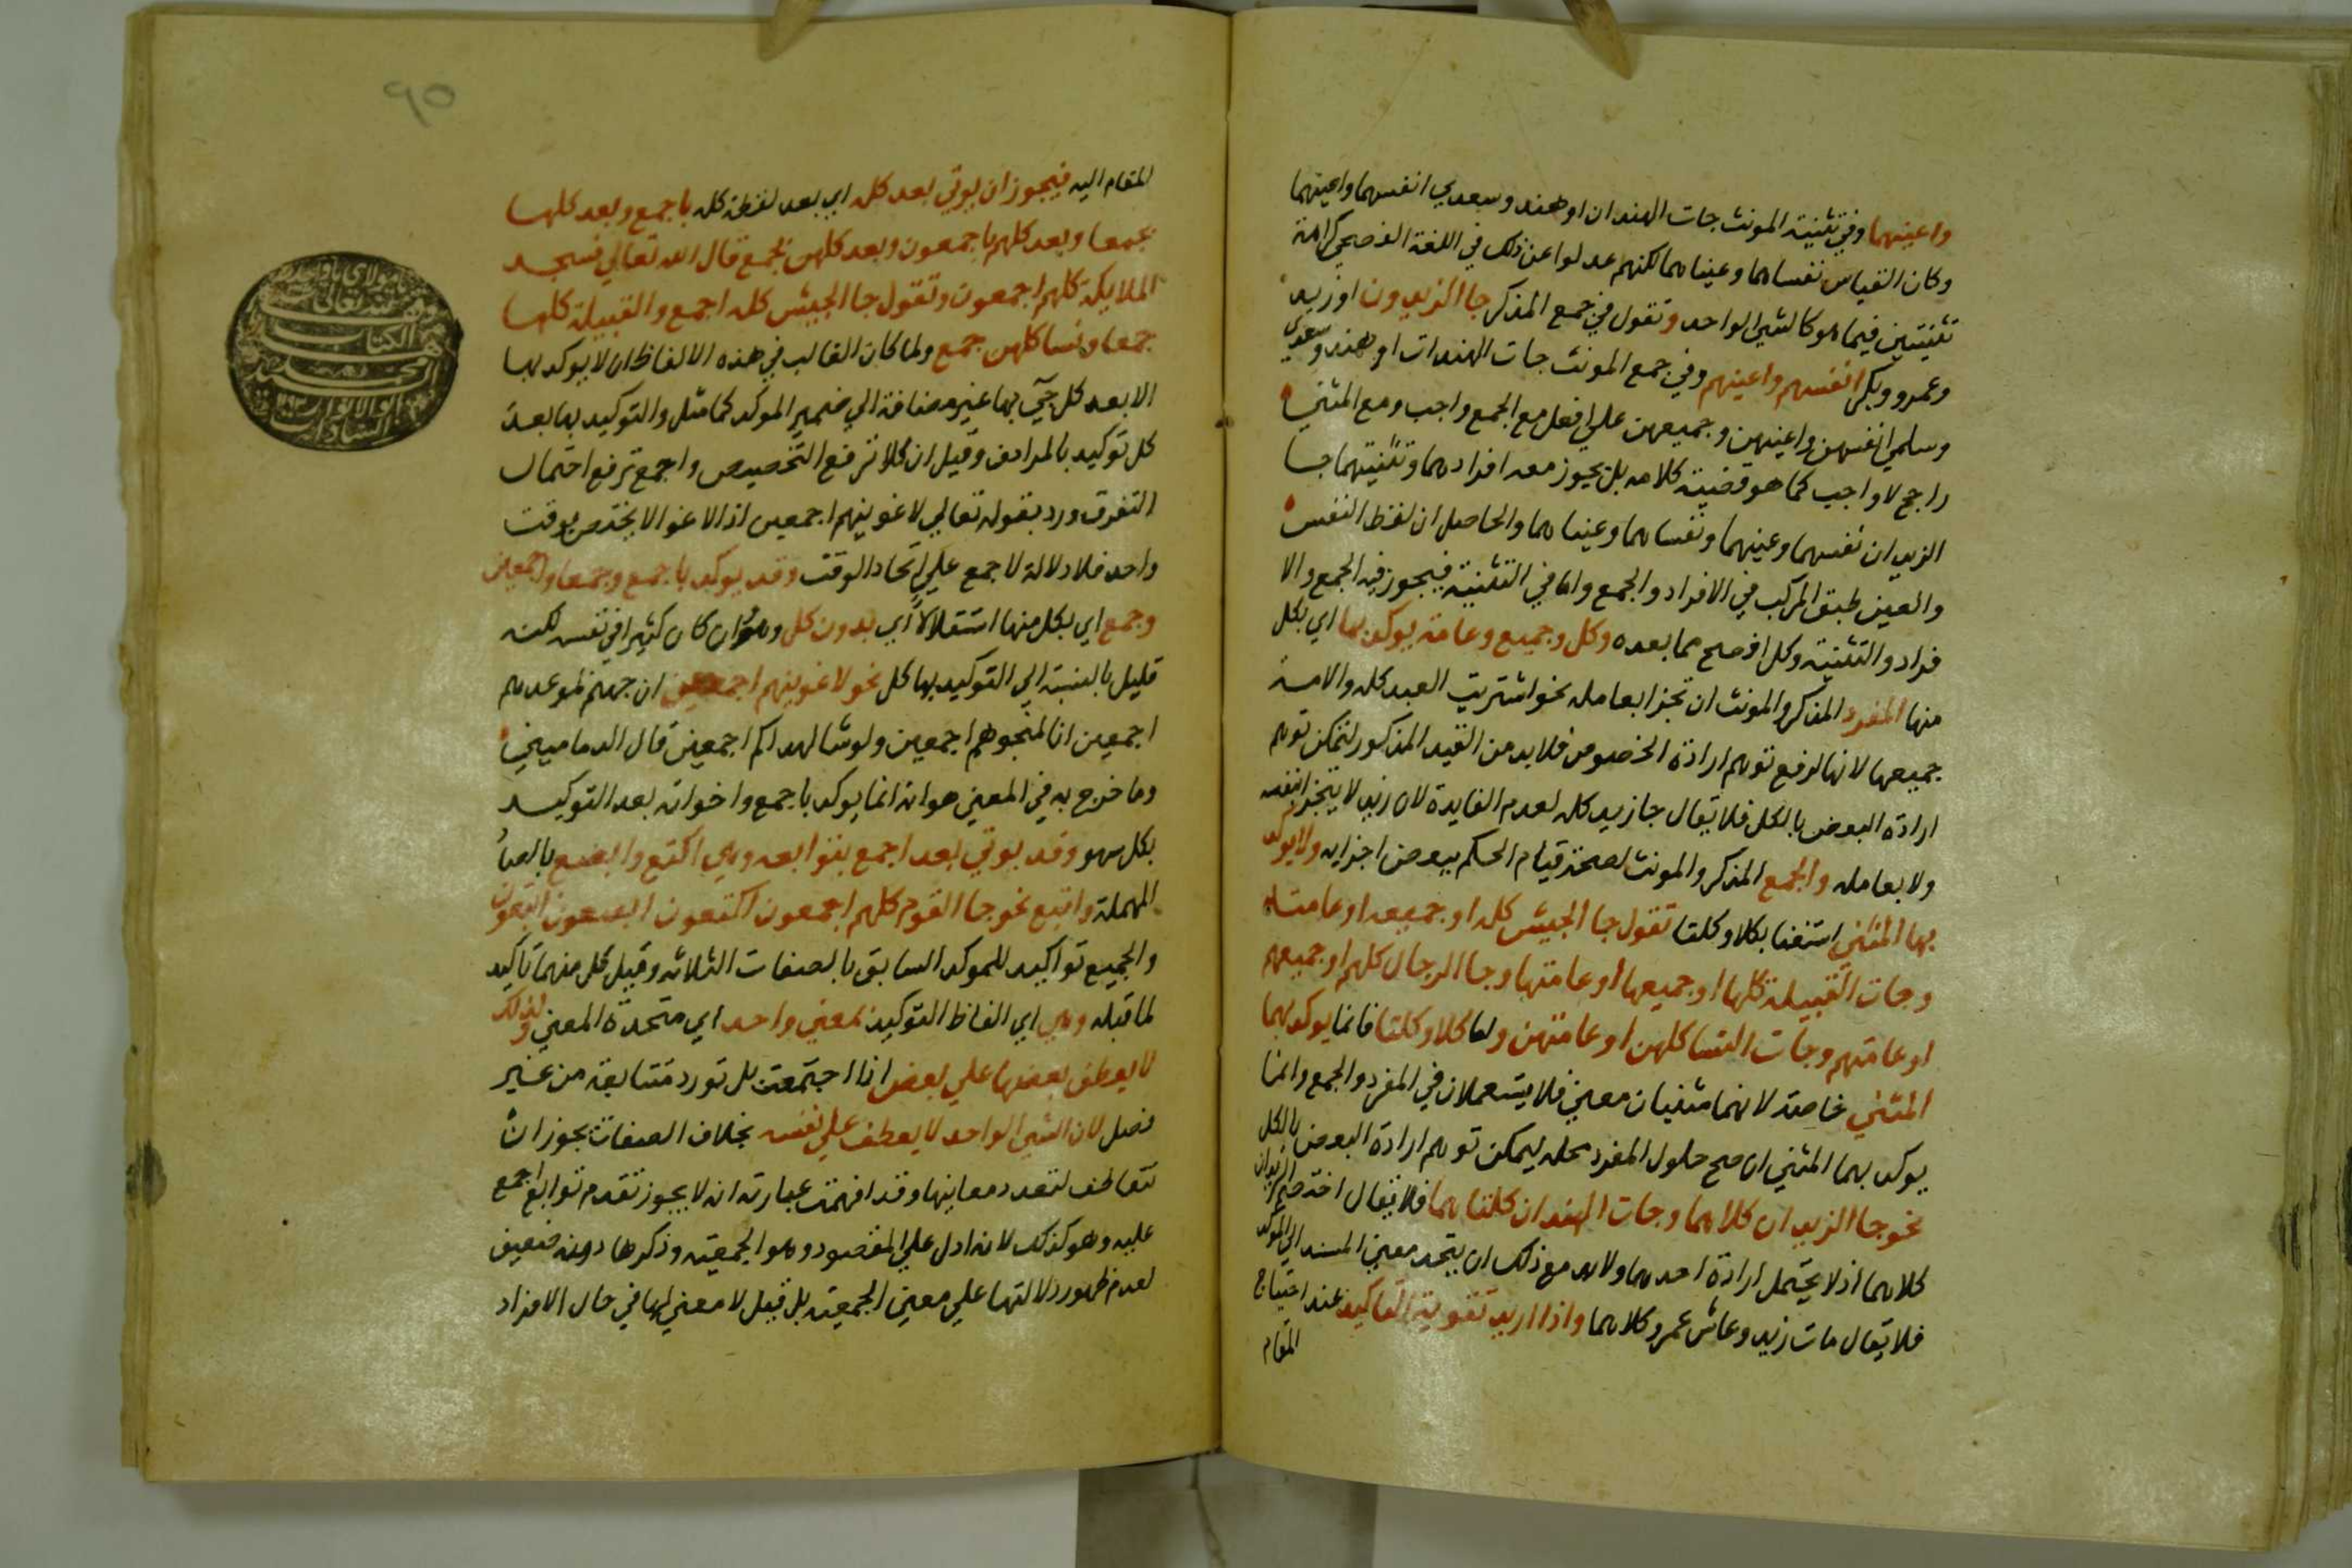 واعينهما وفي تثنية المونث جات الهندان او هند وسعدي انفسهما واعينهما
وكان القياس نفساهما وعيناهما لكنهم عدلوا عن ذلك في اللغة الفصحي كراهة
تثنيتين فيما هو كالشي الواحد وتقول في جمع المذكر جا الزيدون او زيد
وعمرو وبكر انفسهم واعينهم وفي جمع المونث جات الهندات او هند وسعدي
وسلمي انفسهن واعينهن وجميعهن علي افعل مع الجمع واجب ومع المثني
راجح لا واجب كما هو قضية كلامه بل يجوز معه افرادهما وتثنيتهما جا
الزيدان نفسهما وعينهما ونفساهما وعيناهما والحاصل ان لفظ النفس
والعين طبق المركب في الافراد والجمع واما في التثنية فيجوز فيه الجمع والا
فراد والتثنية وكل افصح مما بعده وكل وجميع وعامة يوكد بها اي بكل
منها المفرد المذكر والمونث ان تجزا بعامله نحو اشتريت العبد كله والامة
جميعها لانها لرفع توهم ارادة الخصوص فلا بد من القيد المذكور ليتمكن توهم
ارادة البعض بالكل فلا يقال جا زيد كله لعدم الفايدة لان زيد لا يتجزا بنفسه
ولا بعامله والجمع المذكر والمونث لصحة قيام الحكم ببعض اجزايه ولا يوكد
بها المثني استغنا بكلا وكلتا تقول جا الجيش كله او جميعه او عامته
وجات القبيلة كلها او جميعها او عامتها وجا الرجال كلهم او جميعهم
او عامتهم وجات النسا كلهن او عامتهن واما كلا وكلتا فانما يوكد بهما
المثني خاصة لانهما مثنيان معني فلا يستعملان في المفرد والجمع وانما
يوكد بهما المثني ان صح حلول المفرد محله ليمكن توهم ارادة البعض بالكل
نحو جا الزيدان كلاهما وجات الهندان كلتاهما فلا يقال اختصم الزيدان
كلاهما اذ لا يحتمل ارادة احدهما ولا بد مع ذلك ان يتحد معني المسند الي الموكد
فلا يقال مات زيد وعاش عمرو كلاهما واذا اريد تقوية التاكيد عند احتياج
المقام
٩٥
المقام اليه فيجوز ان يوتي بعد كل اي بعد لفظة كله باجمع وبعد كلها
بجمعا وبعد كلهم باجمعون وبعد كلهن بجمع قال الله تعالي فسجد
الملايكة كلهم اجمعون وتقول جا الجيش كله اجمع والقبيلة كلها
جمعا ونسا كلهن جمع ولما كان الغالب في هذه الالفاظ ان لا يوكد بها
الا بعد كل جي بها غير مضافة الي ضمير الموكد كما مثل والتوكيد بها بعد
كل توكيد بالمرادف وقيل ان كلا ترفع التخصيص واجمع ترفع احتمال
التفرق ورد بقوله تعالي لاغوينهم اجمعين اذ الاغوا لا يختص بوقت
واحد فلا دلالة لاجمع علي اتحاد الوقت وقد يوكد باجمع وجمعا واجمعين
وجمع اي بكل منها استقلالا اي بدون كل وهو وان كان كثيرا في نفسه لكنه
قليل بالنسبة الي التوكيد بها كل نحو لاغوينهم اجمعين ان جهنم لموعدهم
اجمعين انا لمنجوهم اجمعين ولو شا لهداكم اجمعين قال الدماميني
وما خرج به في المغني هو انه انما يوكد باجمع واخواته بعد التوكيد
بكل سهو وقد يوتي بعد اجمع بتوابعه وهي اكتع وابصع بالصاد
المهملة وابتع نحو جا القوم كلهم اجمعون اكتعون ابصعون ابتعون
والجميع تواكيد للموكد السابق بالصفات الثلاثة وقيل كل منهما تاكيد
لما قبله وهي اي الفاظ التوكيد بمعني واحد اي متحدة المعني ولذلك
لا يعطف بعضها علي بعض اذا اجتمعت بل تورد متتابعة من غير
فصل لان الشي الواحد لا يعطف علي نفسه بخلاف الصفات يجوز ان
تتعاطف لتعدد معانيها وقد افهمت عبارته انه لا يجوز تقدم توابع اجمع
عليه وهو كذلك لانه ادل علي المقصود وهو الجمعية وذكرها دونه ضعيف
لعدم ظهور دلالتها علي معني الجمعية بل قيل لا معني لها في حال الافراد